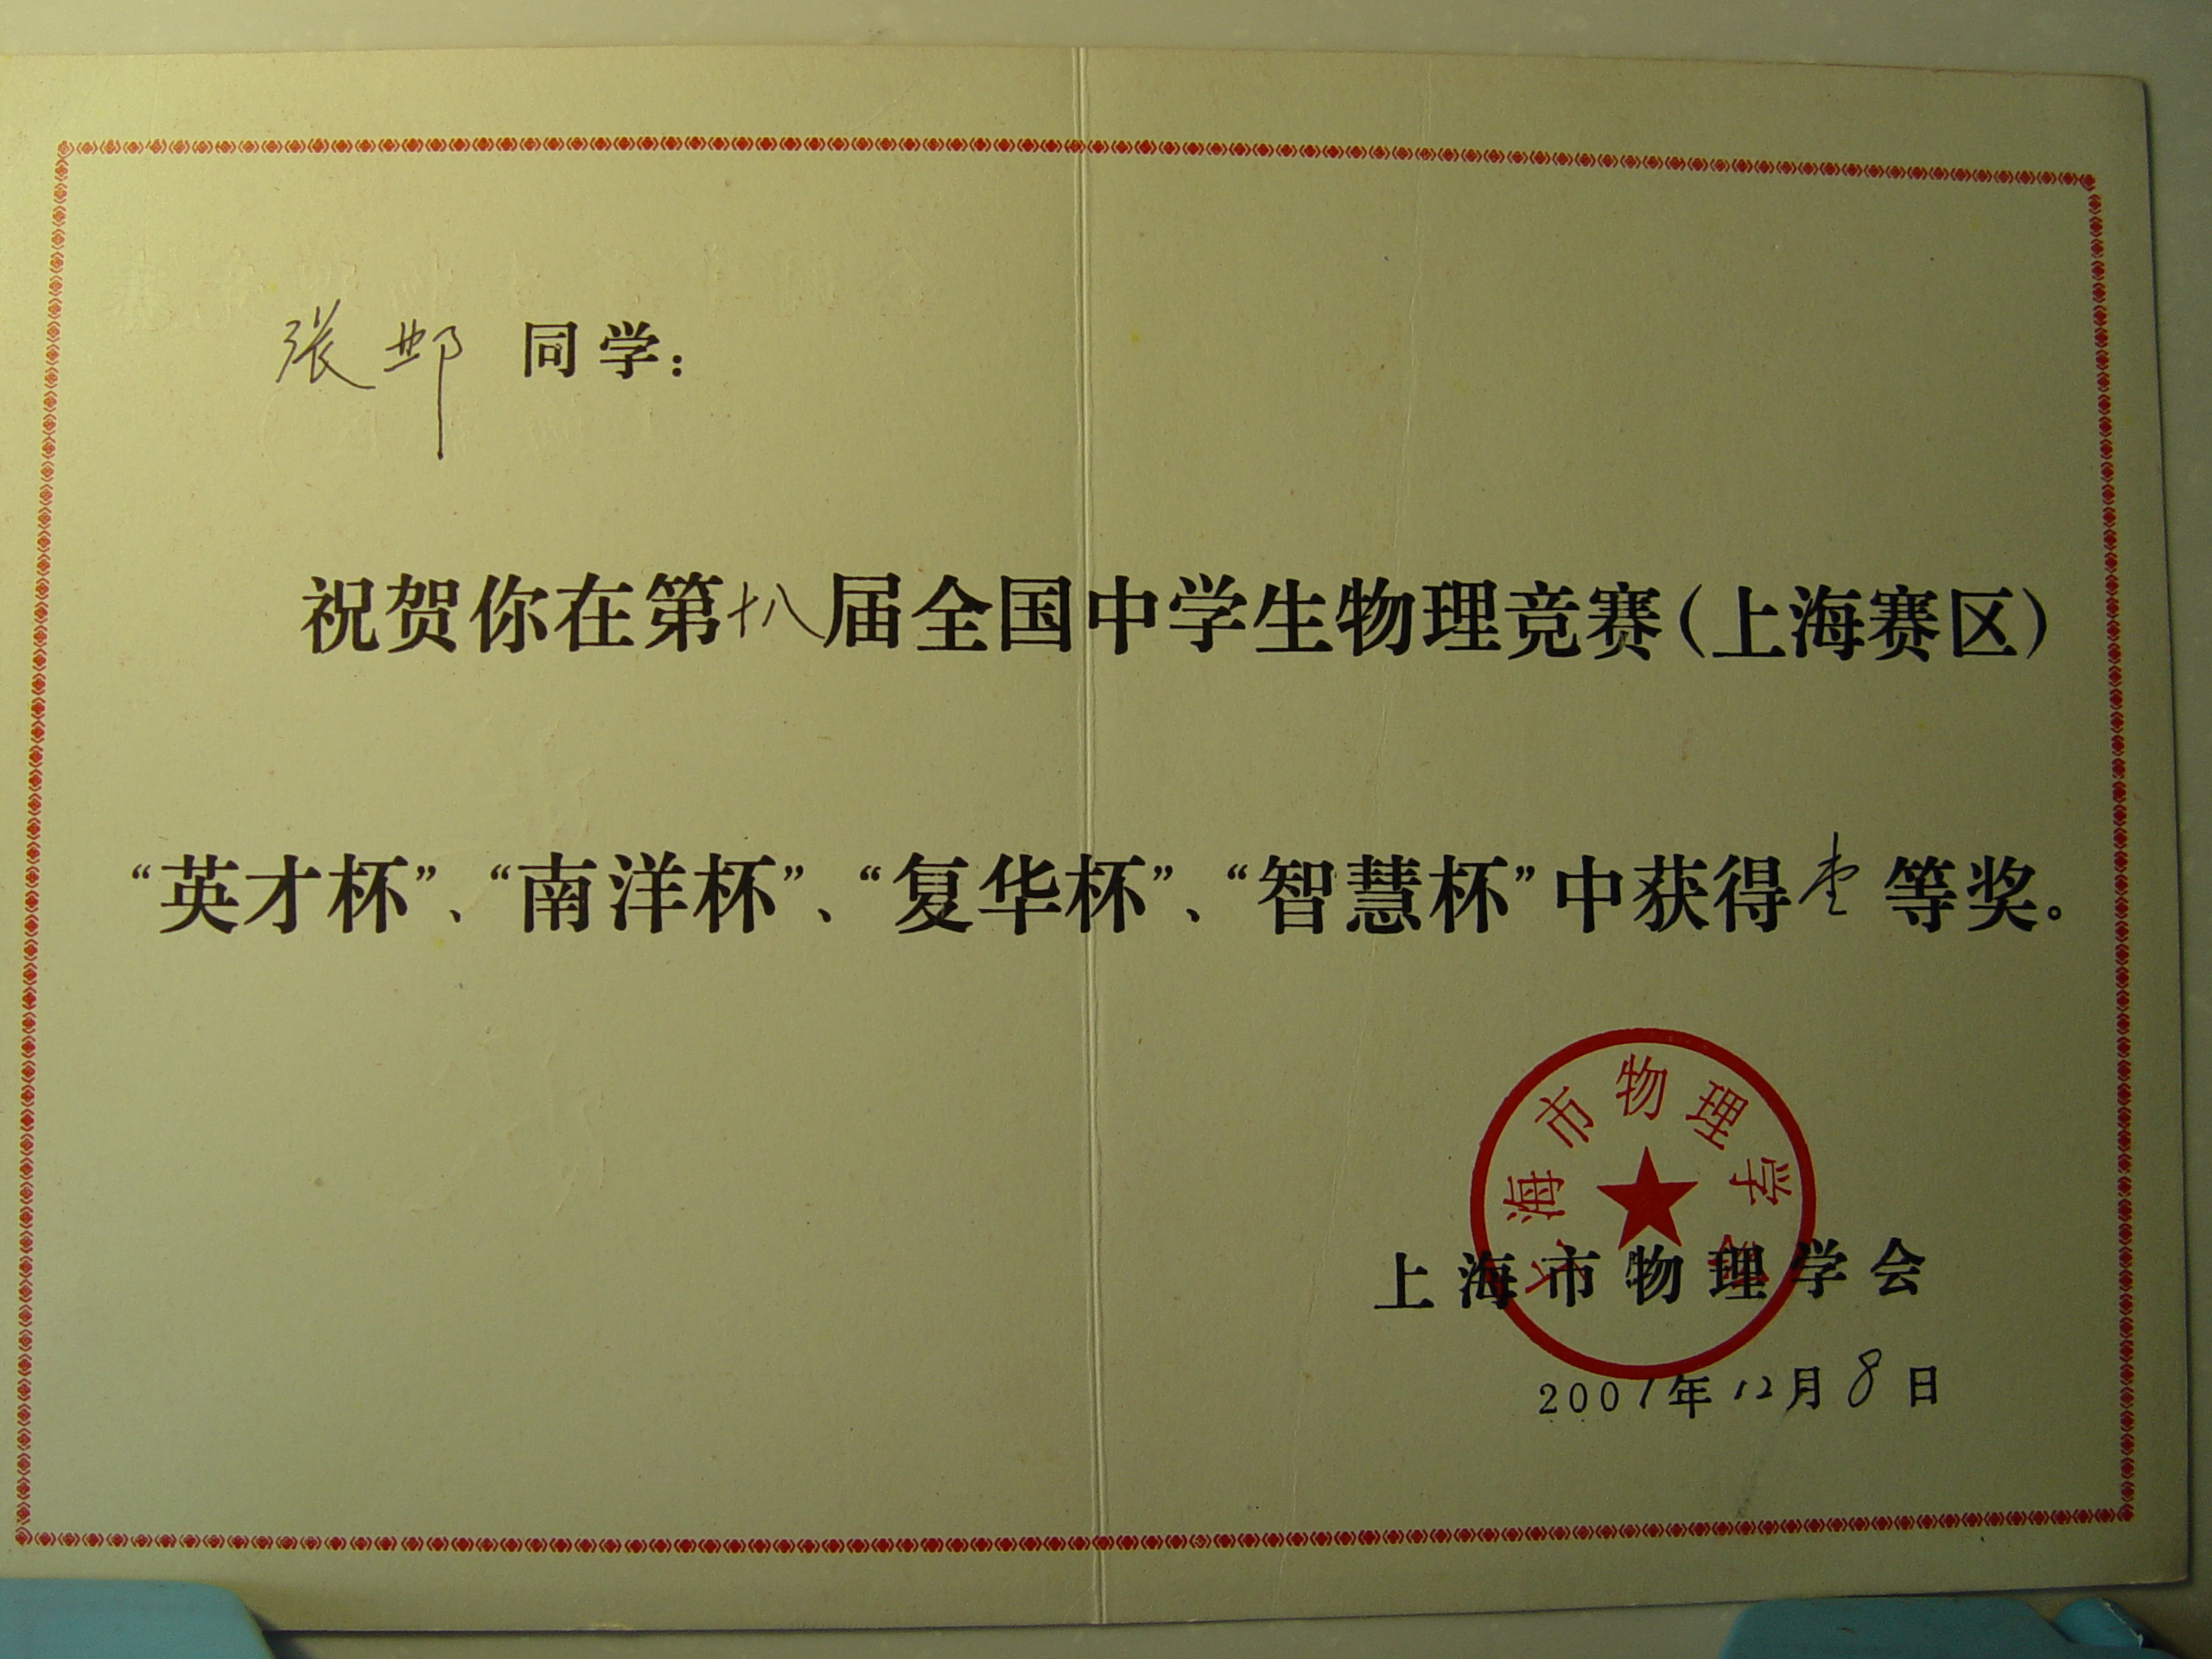 张邺 同学：
祝贺你在第十八届全国中学生物理竞赛（上海赛区）
“英才杯”、“南洋杯”、“复华杯”、“智慧杯”中获得壹等奖。
上海市物理学会
上海市物理学会
2001年12月8日